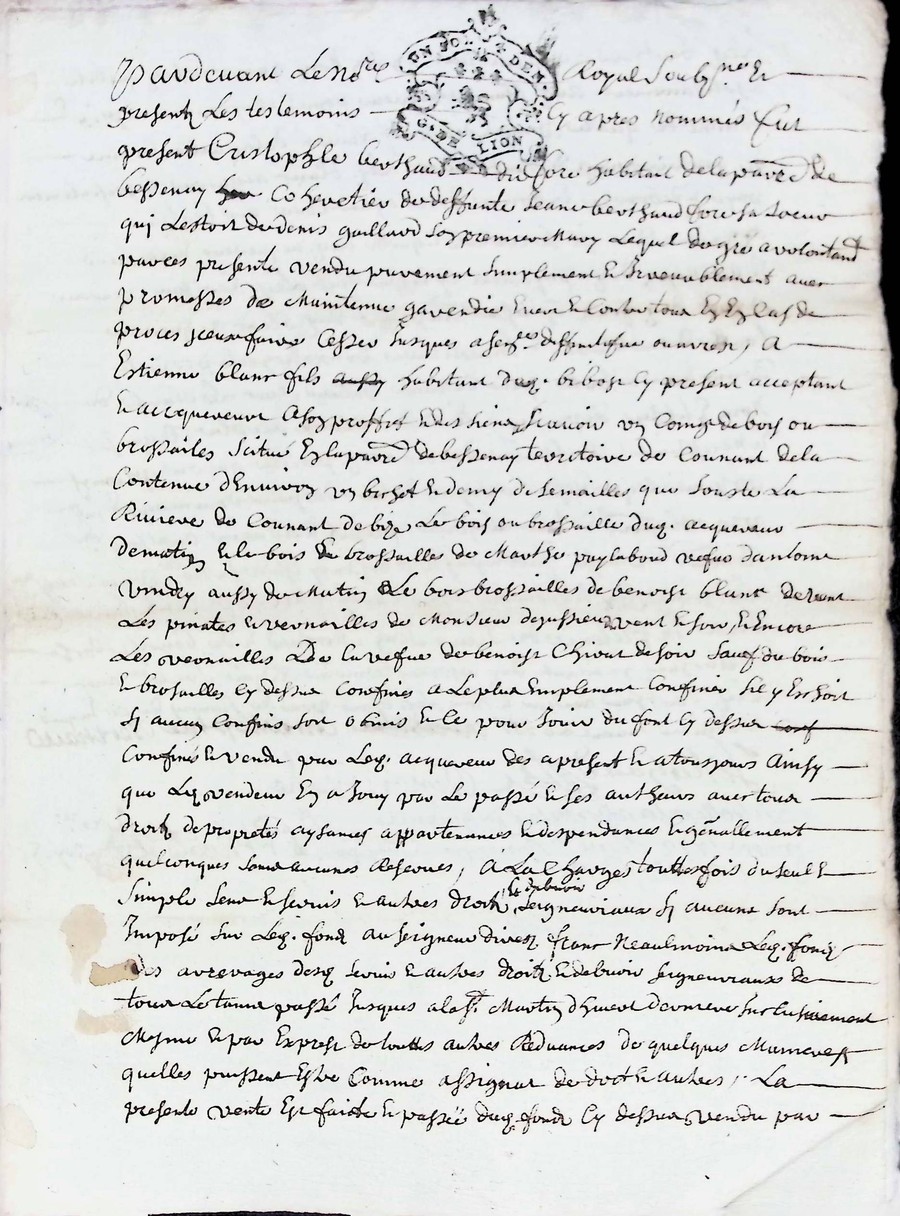 UN SOL 4 DEN.
G. DE LION
Pardevant Le no.re Royal Soubz.né Et
presentz Les tesmoins Cy apres nommés Fut
present Cristophle berthaud dit fore habitant de la parr.e de
bessenay Coheretier de deffunte Jeane berthaud fore sa soeur
qui Lestoit de Denis gaillard son premier Mary Lequel de gré a volonté
par ces presente vendu purement simplement et Irrevocablement avec
promesses de Maintenue garendie Envers et Contre tous Et En Cas de
proces iceux faire Cesser Jusques a sen.ce deffinitifve ou arrest, A
Estienne blanc fils habitant dud. bibost Cy present acceptant
et acquereur A son proffit et des siens scavoir un Coing de bois ou
brossailes scitué En la parr.e de bessenay territoire de Counant de la
Contenue d'Environ un bichet et demy de semailles que Jouste La
Riviere de Counant de bize Le bois ou brossaille dud. acquereur
de matin et le bois brossailles de Marthe puylaboud vefue d'antoine
vindry aussy de Matin Le bois brossailles de benoist blanc de vent
Les pinates et vernailles de Monsieur dejussieu vent et soir, et Encore
Les vernailles De La vefue de benoist Chirat de soir sauf du bois
et brosailles Cy dessus Confinés a Le plus Emplement Confiner sil y Eschoit
Sy aucun Confins sont obmis et ce pour Jouir du font Cy dessus
Confiné et vendu par Led. acquereur des apresent et a tousjours Ainsy
que Led. vendeur En a Jouy par Le passé et ses autheurs avec tous
droitz de propretés aysances appartenances et despendances et g.nallement
quelconques sans aucunes Reserves, A La Charges touttesfois du seul et
simple sens et servis et autres droitz et debvoir seigneuriaux sy aucuns sont
Imposé sur Led. fond au seigneur direct franc Neaulmoins Led. fond
des arrerages desd. servis et autres droitz et debvoir seigneuriaux de
tous Le tamps passé Jusques a la s.t Martin d'hivert derniere
Mesme et par Exprest de touttes autres Reduances de quelques
quelles puissent Estre Comme assignat de dot et autres, La
presente vente Est faicte et passéé dud. fond Cy dessus vendu par